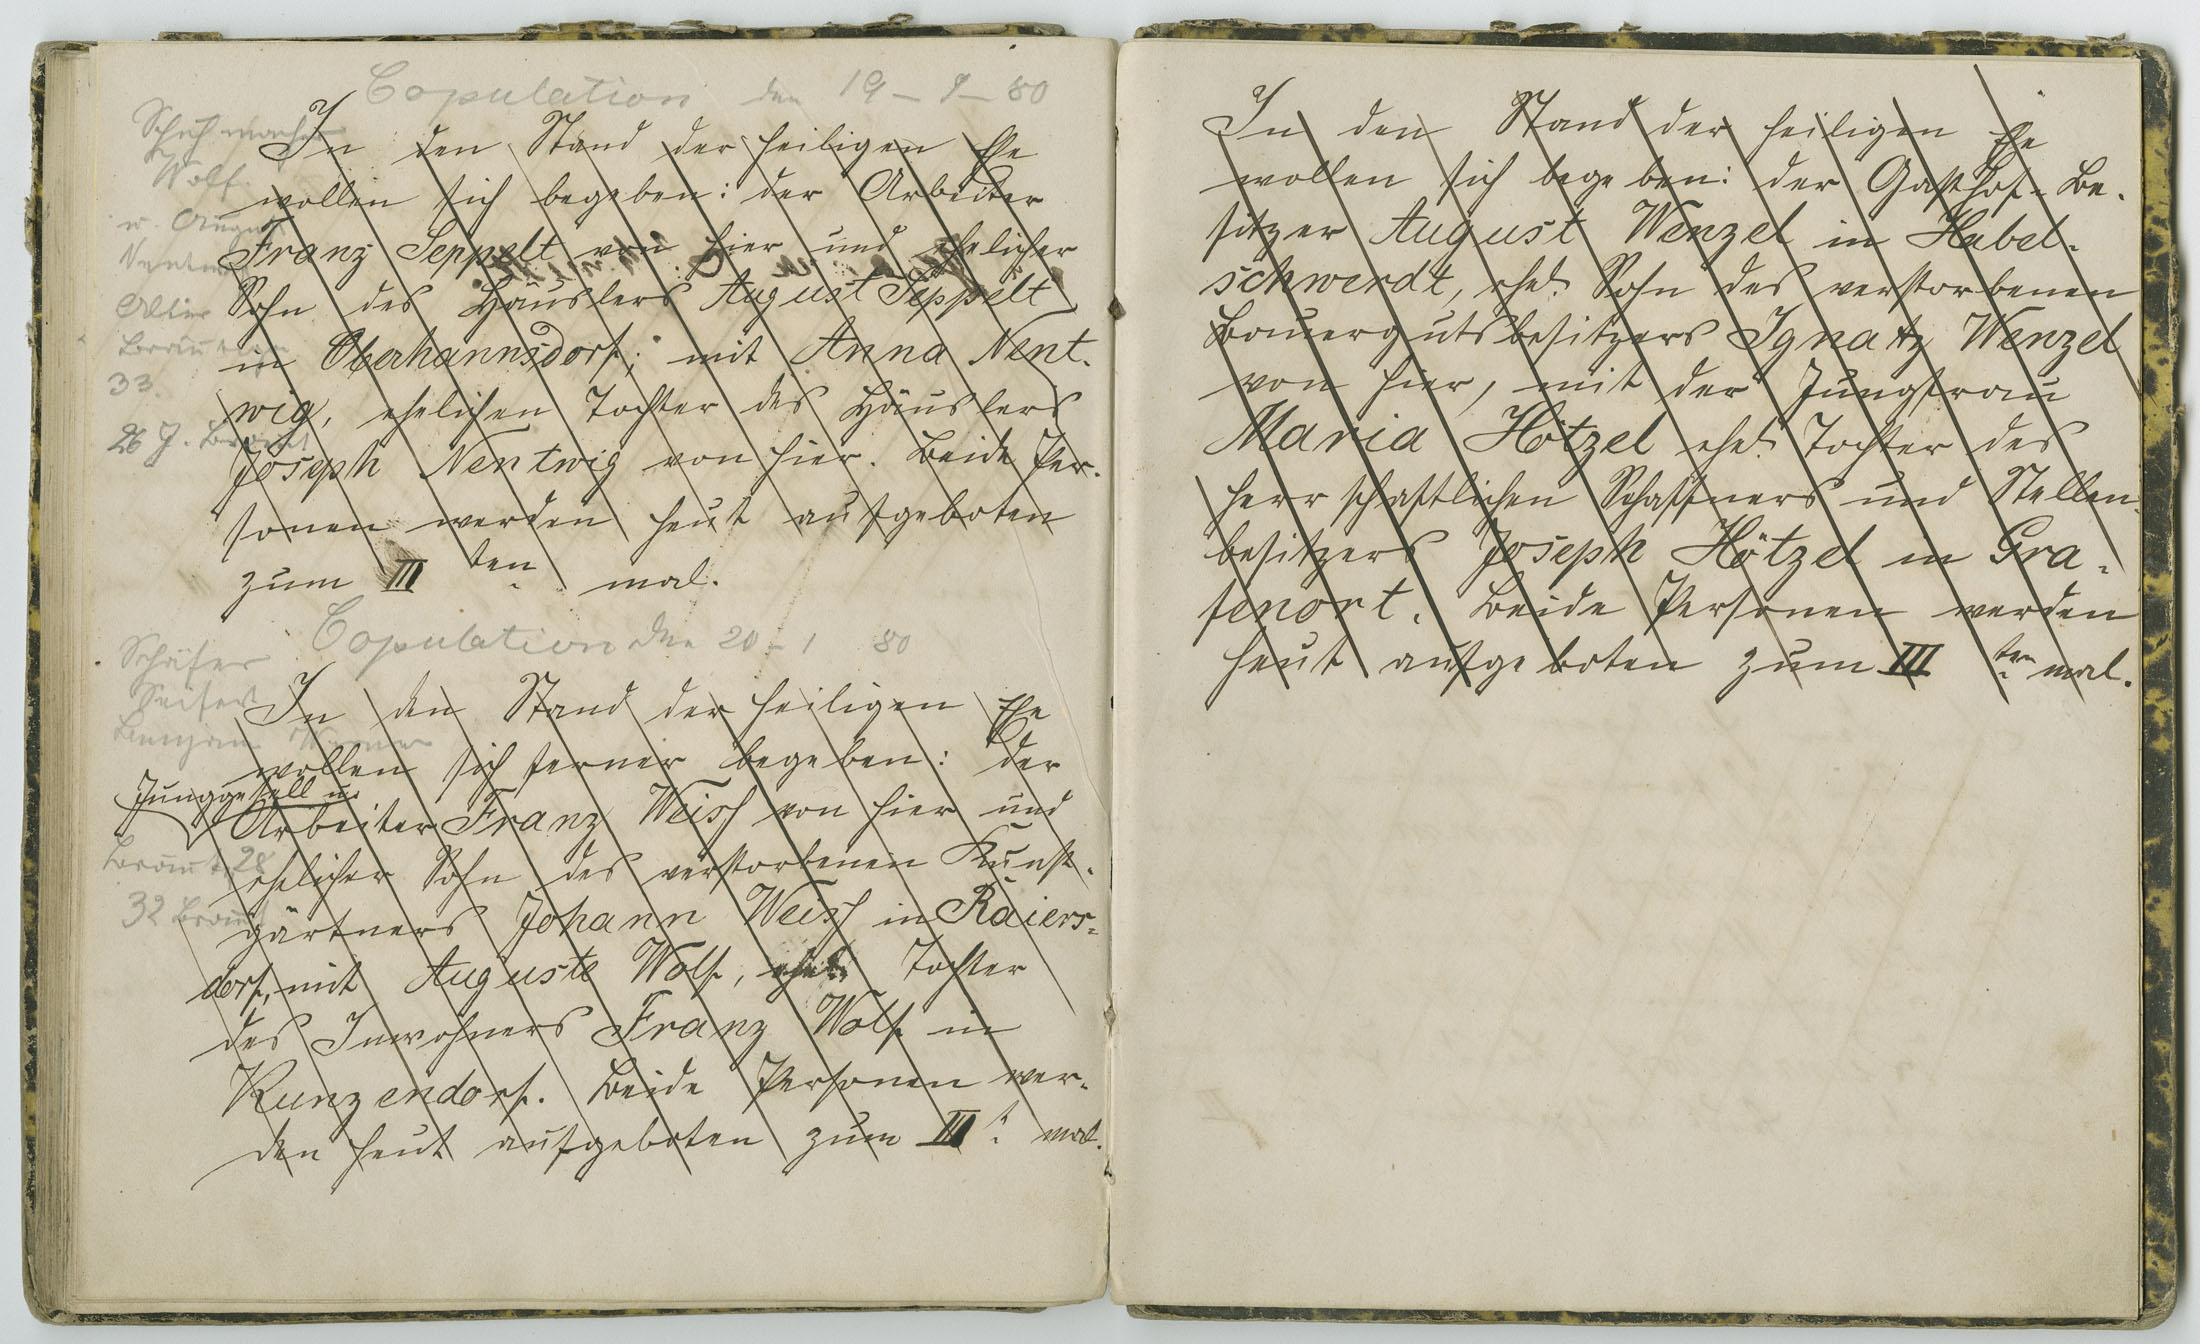 Copulation den 19 - 1 - 80
Schuhmacher
Wolf.
u. August
Alter
33.
26 J. Braut
In den Stand der heiligen Ehe
wollen sich begeben: der Arbeiter
Franz Seppelt von hier und ehelicher
Sohn des Häuslers August Seppelt
in Oberhannsdorf; mit Anna Nent-
wig, ehelichen Tochter des Häuslers
Joseph Nentwig von hier. Beide Per-
sonen werden heut aufgeboten
zum III ten mal.
Copulation den 20 - 1 80
Schäfer
Seifert
Junggesell u.
Braut 28
32 Bräut
In den Stand der heiligen Ehe
wollen sich ferner begeben: der
Arbeiter Franz Weiss von hier und
ehelicher Sohn des verstorbenen Kunst-
gärtners Johann Weiss in Raiers-
dorf, mit Auguste Wolf, ehel. Tochter
des Inwohners Franz Wolf in
Kunzendorf. Beide Personen wer-
den heut aufgeboten zum III t. mal.
In den Stand der heiligen Ehe
wollen sich begeben: der Gasthof-Be-
sitzer August Wenzel in Habel-
schwerdt, ehel. Sohn des verstorbenen
Bauergutsbesitzers Ignatz Wenzel
von hier, mit der Jungfrau
Maria Hötzel ehel. Tochter des
herrschaftlichen Schaffners und Stellen-
besitzers Joseph Hötzel in Gra-
fenort. Beide Personen werden
heut aufgeboten zum III ten mal.